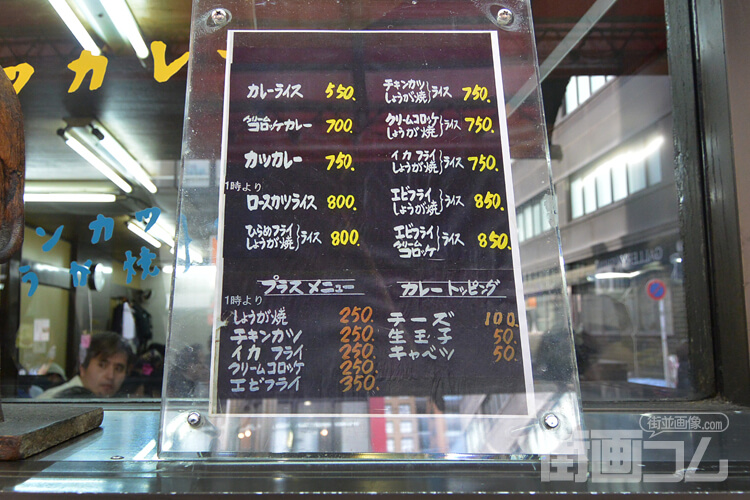 カレーライス 550.
クリームコロッケカレー 700.
カツカレー 750.
1時より
ロースカツライス 800.
ひらめフライ しょうが焼 ライス 800.
チキンカツ しょうが焼 ライス 750.
クリームコロッケ しょうが焼 ライス 750.
イカフライ しょうが焼 ライス 750.
エビフライ しょうが焼 ライス 850.
エビフライ クリームコロッケ ライス 850.
プラスメニュー
1時より
しょうが焼 250.
チキンカツ 250.
イカフライ 250.
クリームコロッケ 250.
エビフライ 350.
カレートッピング
チーズ 100.
生玉子 50.
キャベツ 50.
街並画像.com
街画コム